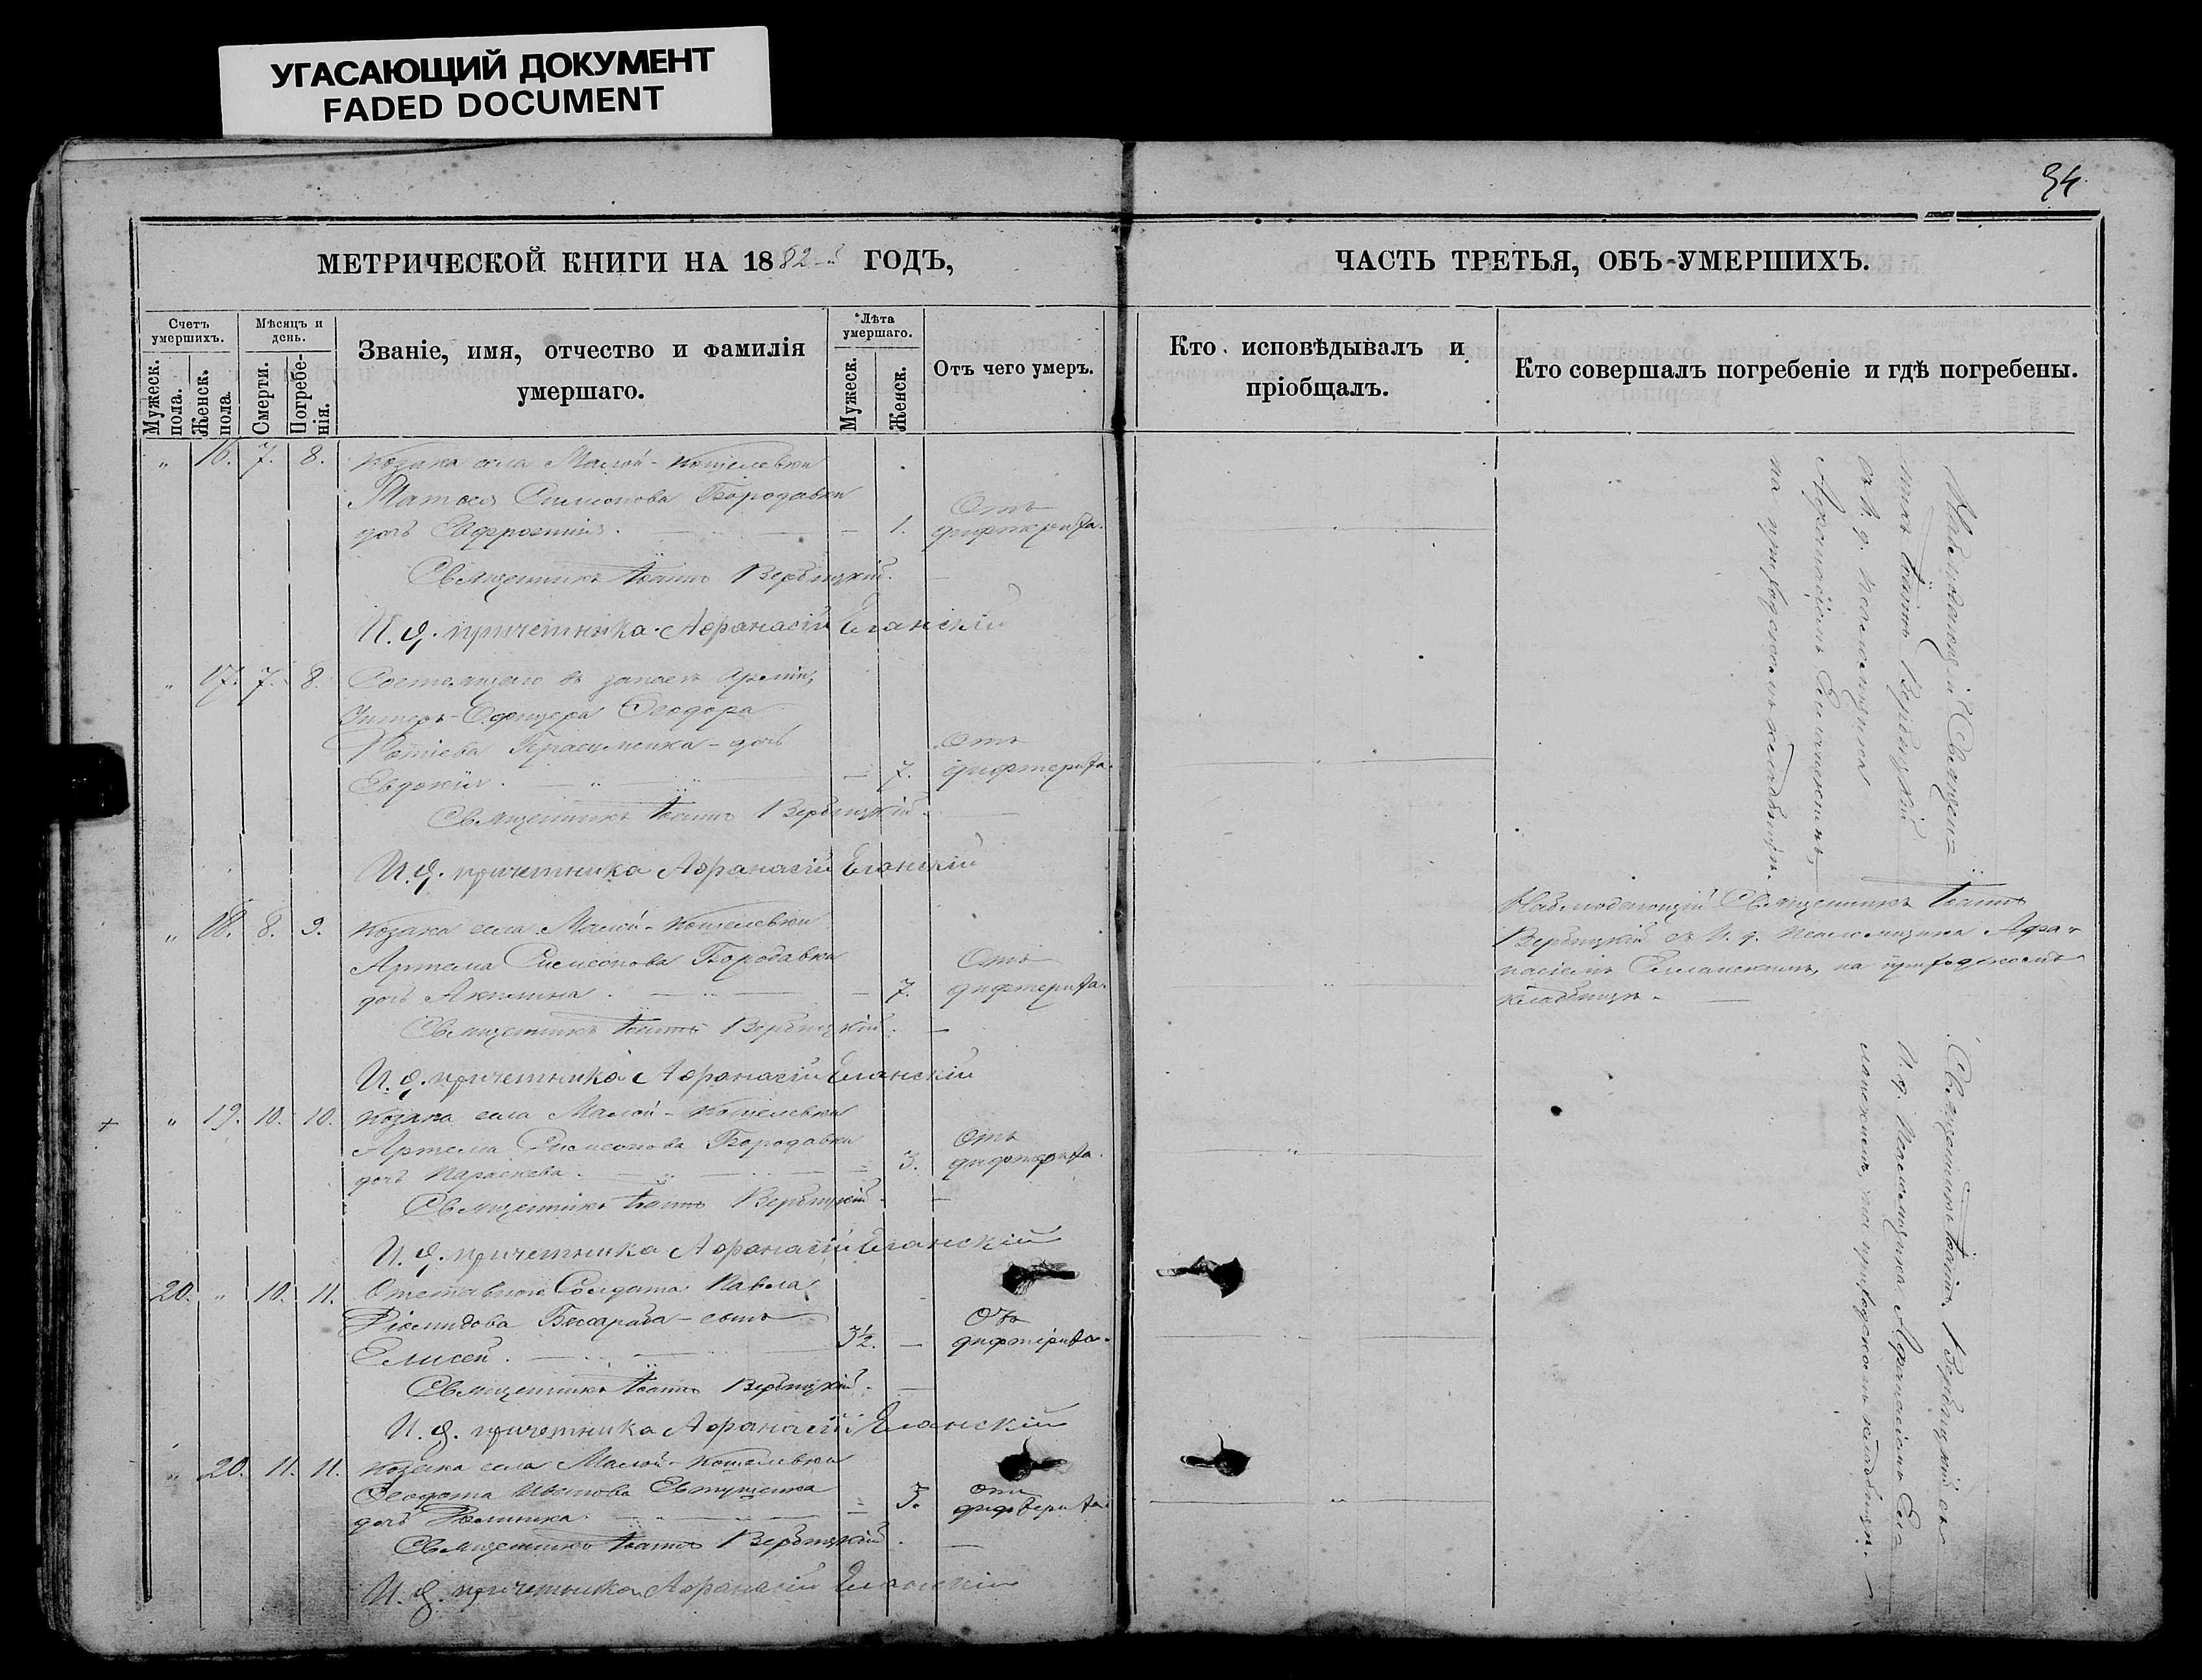 УГАСАЮЩИЙ ДОКУМЕНТ
FADED DOCUMENT
34
МЕТРИЧЕСКОЙ КНИГИ НА 1882-й ГОДЪ,
ЧАСТЬ ТРЕТЬЯ, ОБЪ УМЕРШИХЪ.
Счетъ умершихъ.
Мужеск. пола.
Женск. пола.
Мѣсяцъ и день.
Смерти.
Погребенія.
Званіе, имя, отчество и фамилія
умершаго.
Лѣта умершаго.
Мужеск.
Женск.
Отъ чего умеръ.
Кто исповѣдывалъ и
пріобщалъ.
Кто совершалъ погребеніе и гдѣ погребены.
" 16. 7. 8. Козака села Малой-Кошелевки
Симеонова Бородавки
дочь Евфросинія. — 1. Отъ дифтерита.
Священникъ Іоаннъ Вербицкій.
И. д. причетника Афанасій Еланскій
" 17. 7. 8. Состоящаго въ запасѣ Арміи,
Унтеръ-Офицера Ѳеодора
Герасименка - дочь
Евдокія. — 7. Отъ дифтерита.
Священникъ Іоаннъ Вербицкій.
И. д. причетника Афанасій Еланскій
" 18. 8. 9. Козака села Малой-Кошелевки
Артема Симеонова Бородавки
дочь Акилина. — 7. Отъ дифтерита.
Священникъ Іоаннъ Вербицкій.
И. д. причетника Афанасій Еланскій
" 19. 10. 10. Козака села Малой-Кошелевки
Артема Симеонова Бородавки
дочь Параскева. — 3. Отъ дифтерита.
Священникъ Іоаннъ Вербицкій.
И. д. причетника Афанасій Еланскій
20. " 10. 11. Отставнаго Солдата Павла
Бесараба - сынъ
Елисей. 3½. — Отъ дифтерита.
Священникъ Іоаннъ Вербицкій.
И. д. причетника Афанасій Еланскій
" 20. 11. 11. Козака села Малой-Кошелевки
Ѳеодота Иванова Евтушенка
дочь 3. Отъ дифтерита.
Священникъ Іоаннъ Вербицкій.
И. д. причетника Афанасій Еланскій
Наблюдающій Священ-
никъ Іоаннъ Вербицкій
съ И. д. псаломщика
Афанасіемъ Еланскимъ,
на приходскомъ кладбищѣ.
Наблюдающій Священникъ Іоаннъ
Вербицкій съ И. д. псаломщика Афа-
насіемъ Еланскимъ, на приходскомъ
кладбищѣ.
Священникъ Іоаннъ Вербицкій съ
И. д. Псаломщика Афанасіемъ Ела-
нскимъ, на приходскомъ кладбищѣ.